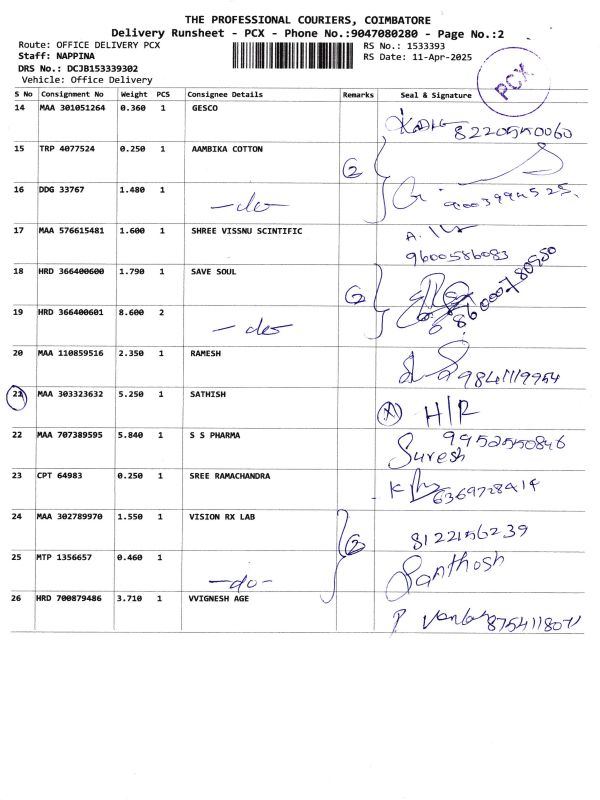 THE PROFESSIONAL COURIERS, COIMBATORE
Delivery Runsheet - PCX - Phone No.:9047080280 - Page No.:2
Route: OFFICE DELIVERY PCX RS No.: 1533393
Staff: NAPPINA RS Date: 11-Apr-2025
DRS No.: DCJB153339302
Vehicle: Office Delivery
PCX
S No Consignment No Weight PCS Consignee Details Remarks Seal & Signature
14 MAA 301051264 0.360 1 GESCO
8220550060
15 TRP 4077524 0.250 1 AAMBIKA COTTON
2
16 DDG 33767 1.480 1 -do-
9003994525.
17 MAA 576615481 1.600 1 SHREE VISSNU SCINTIFIC
9600586083
18 HRD 366400600 1.790 1 SAVE SOUL
2
8600078050
19 HRD 366400601 8.600 2 -do-
20 MAA 110859516 2.350 1 RAMESH
9841119954
21 MAA 303323632 5.250 1 SATHISH
H/R
22 MAA 707389595 5.840 1 S S PHARMA
9952550846
Suresh
23 CPT 64983 0.250 1 SREE RAMACHANDRA
6369728414
24 MAA 302789970 1.550 1 VISION RX LAB
2 8122156239
25 MTP 1356657 0.460 1 -do-
Santhosh
26 HRD 700879486 3.710 1 VVIGNESH AGE
8754118071